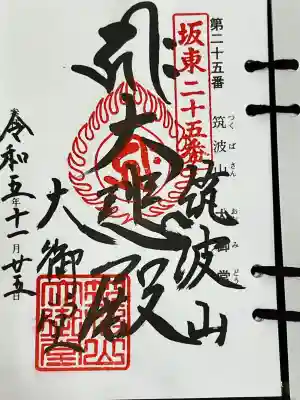 第二十五番
筑波山 大御堂
つくばさん おおみどう
坂東二十五番
筑波山
大悲殿
大御堂
令和五年十一月廿五日